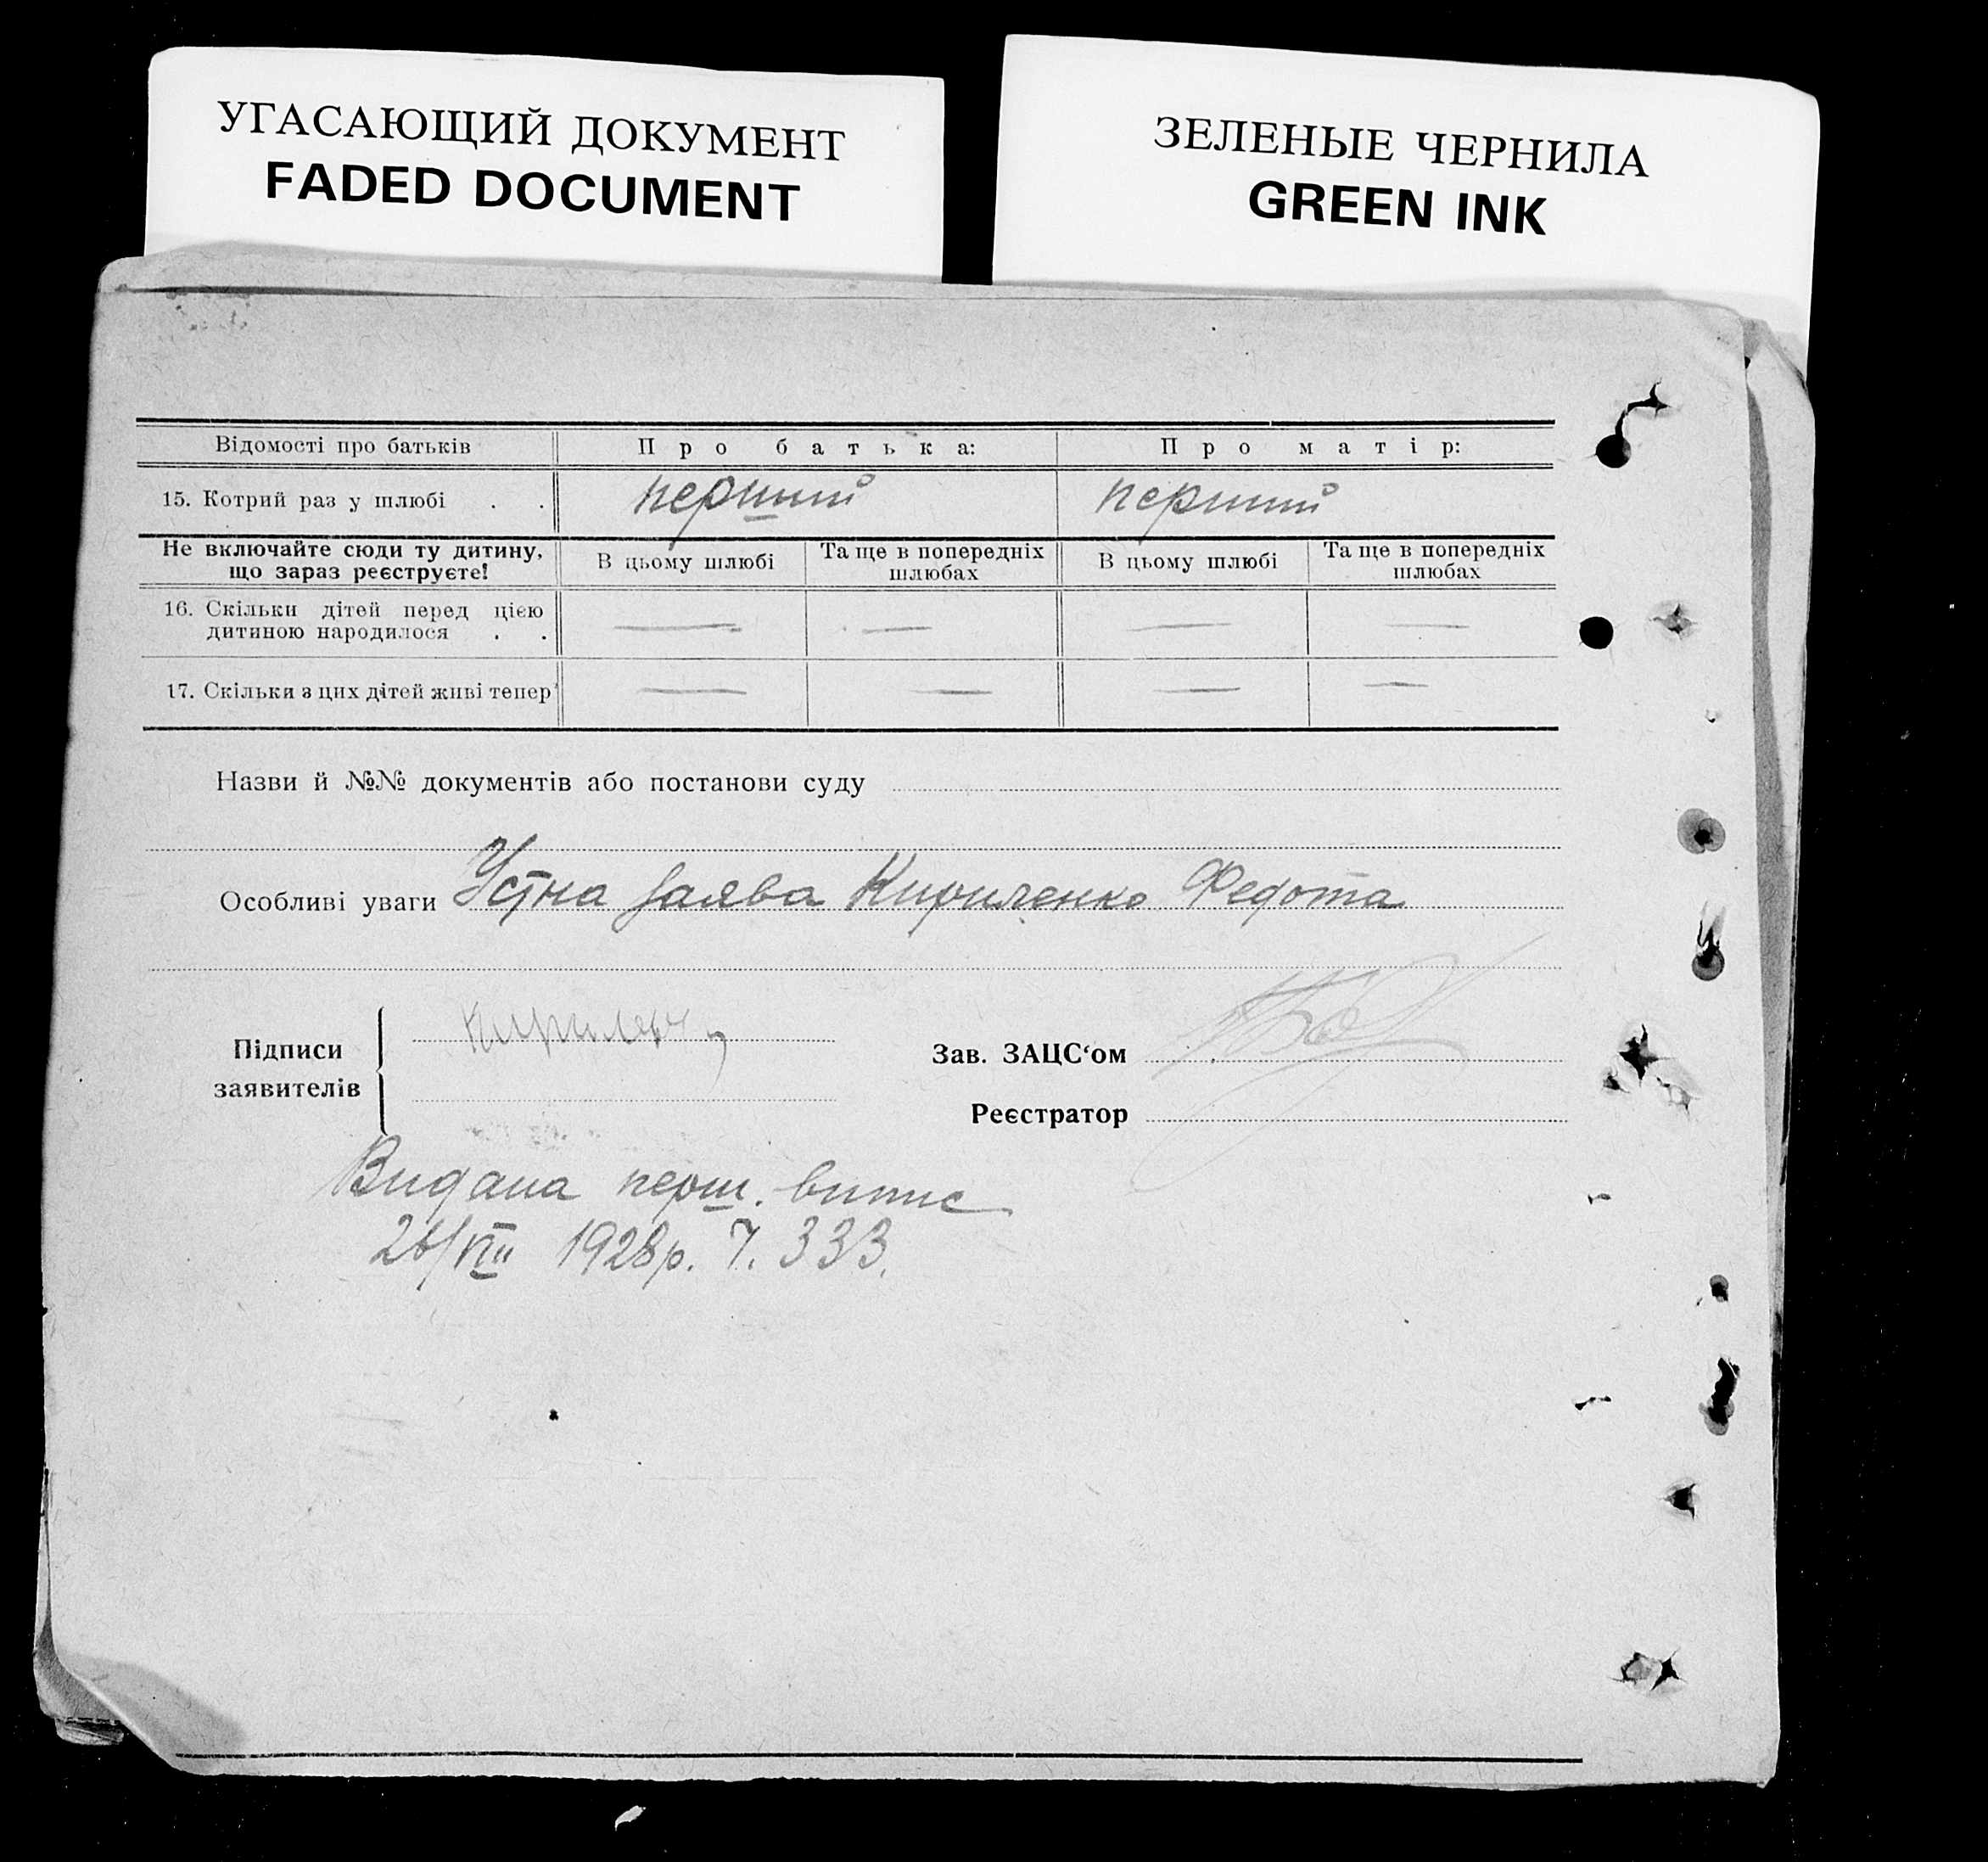 УГАСАЮЩИЙ ДОКУМЕНТ
FADED DOCUMENT
ЗЕЛЕНЫЕ ЧЕРНИЛА
GREEN INK
Відомості про батьків Про батька: Про матір:
15. Котрий раз у шлюбі . . перший перший
Не включайте сюди ту дитину, що зараз реєструєте! В цьому шлюбі Та ще в попередніх шлюбах В цьому шлюбі Та ще в попередніх шлюбах
16. Скільки дітей перед цією
дитиною народилося . . — — — —
17. Скільки з цих дітей живі тепер — — — —
Назви й №№ документів або постанови суду
Особливі уваги Устна заява Кириленко Федота
Підписи
заявителів
Зав. ЗАЦС‘ом
Реєстратор
Видана перш. випис
26/VIII 1928р. Ч. 333.